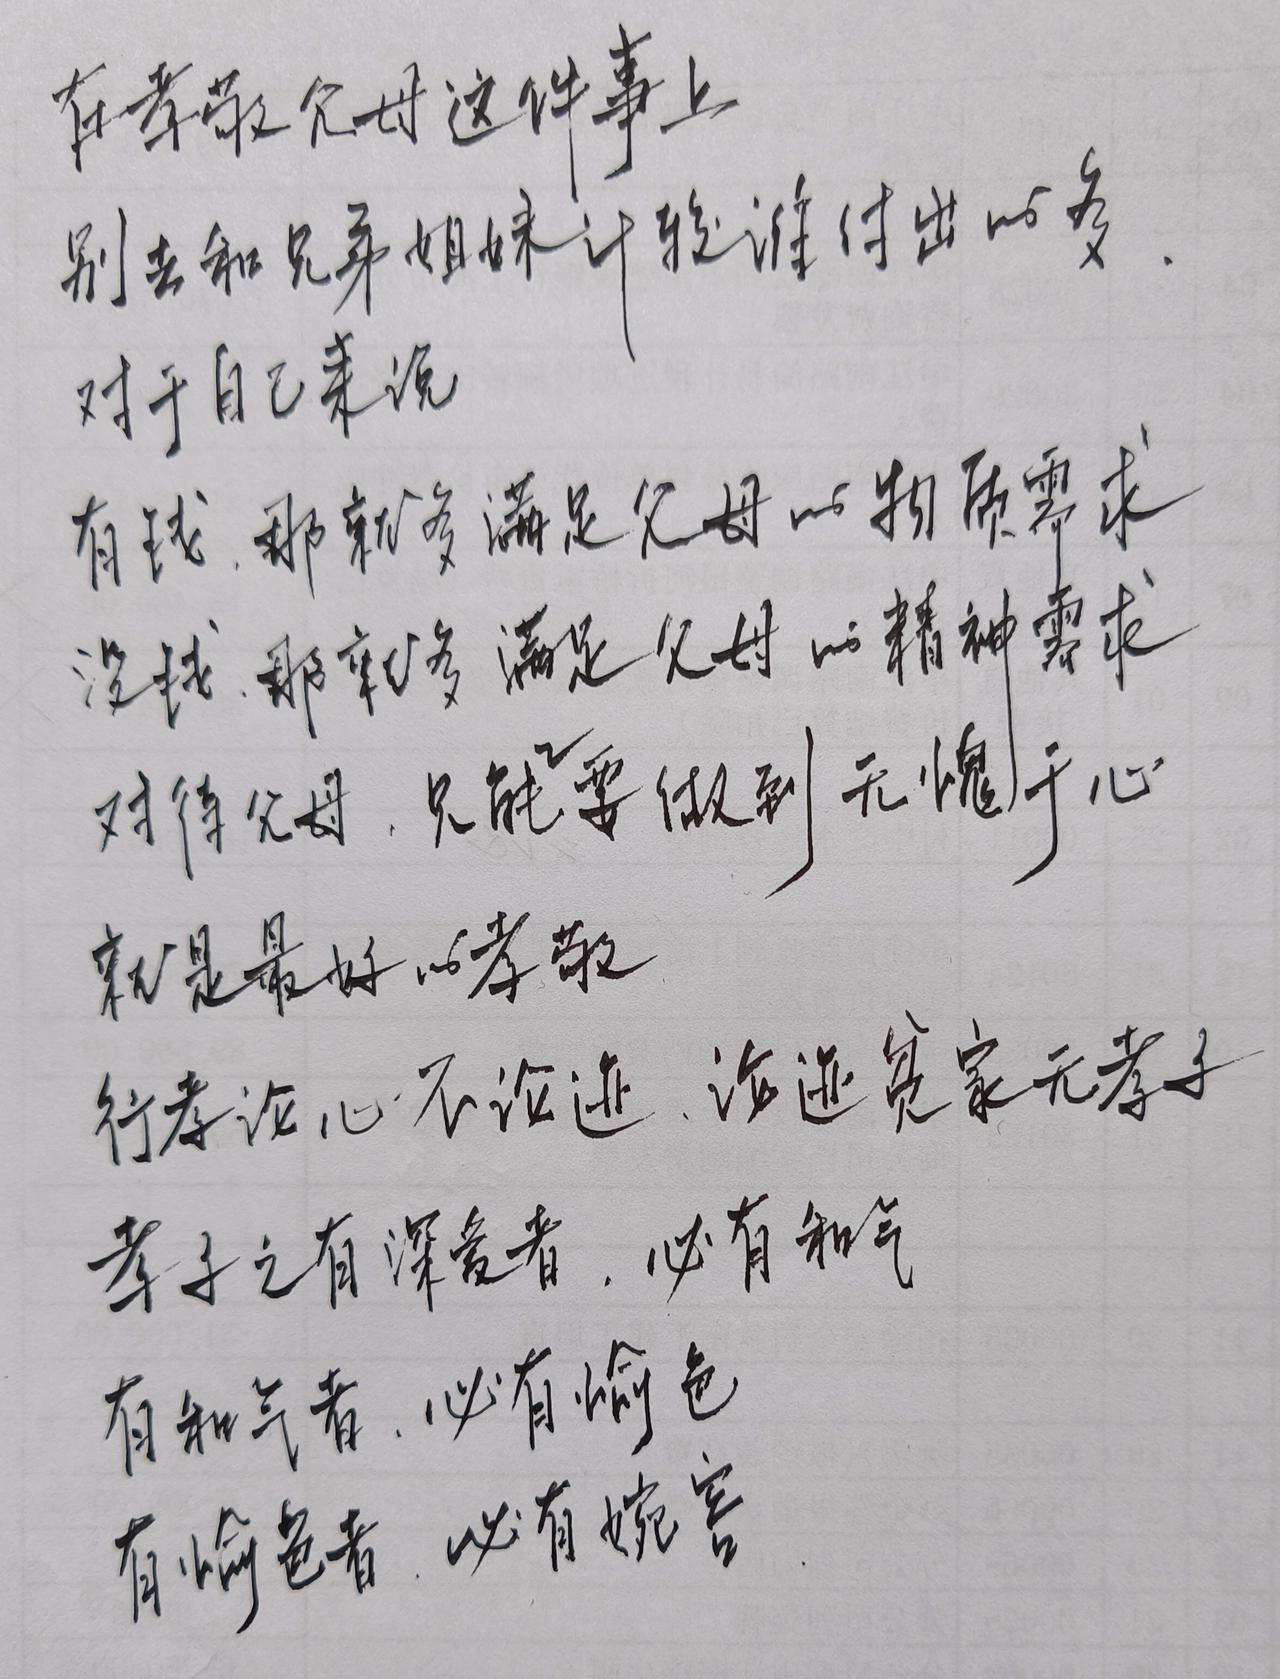 在孝敬父母这件事上
别去和兄弟姐妹计较谁付出的多.
对于自己来说
有钱.那就多满足父母的物质需求
没钱.那就多满足父母的精神需求
对待父母.只能要做到无愧于心
就是最好的孝敬
行孝论心不论迹.论迹寒家无孝子
孝子之有深爱者.必有和气
有和气者.必有愉色
有愉色者.必有婉容.